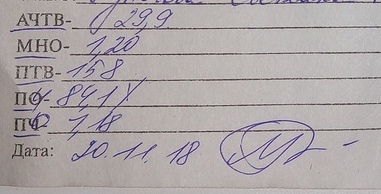 АЧТВ- 29,9
МНО- 1,20
ПТВ- 15,8
ПО 84,1%
ПЧ 1,18
Дата: 20.11.18